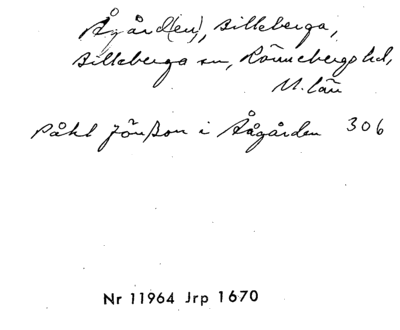 Ågård(en), Billeberga,
Billeberga sn, Rönnebergs hd,
M. län
Påhl Jönßon i Åågården 306
Nr 11964 Jrp 1670